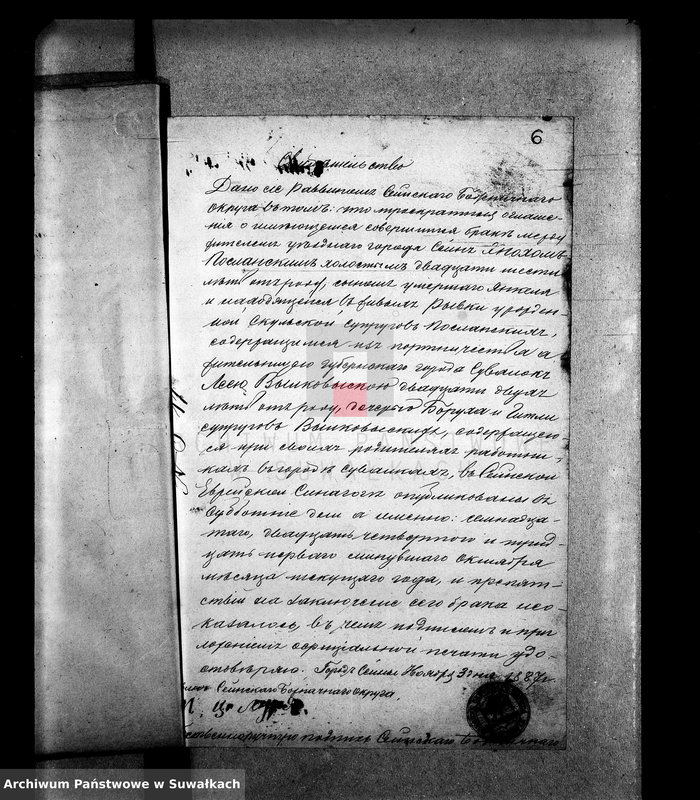 6
Свидѣтельство
Дано сіе Раввиномъ Сейнскаго Божничнаго
Округа въ томъ: что троекратныя оглаше-
нія о имѣющемся совершится бракѣ между
жителемъ уѣзднаго города Сейнъ Янохомъ
Посланскимъ холостымъ двадцати шести
лѣтъ отъ роду, сыномъ умершаго Янкеля
и находящейся въ живыхъ Рывки урожден-
ной Скульской супруговъ Посланскихъ,
содержащимся изъ портничества а
жительницею губернскаго города Сувалокъ
Леею Вышковыскою двадцати двухъ
лѣтъ отъ роду, дочерью Боруха и Гитли
супруговъ Вышковыскихъ, содержащею-
ся при своихъ родителяхъ работни-
кахъ въ городѣ Сувалкахъ, въ Сейнской
Еврейской Синагогѣ опубликованы въ
субботніе дни а именно: семнадца-
таго, двадцать четвертаго и трид-
цать перваго минувшаго Октября
мѣсяца текущаго года, и препят-
ствій на заключеніе сего брака неο-
казалось, въ чемъ подписомъ и при
ложеніемъ оффиціальной печати удо-
стовѣряю. Городъ Сейны Ноября 3 дня 1887 г.
Сейнскаго Божничнаго Округа,
подпись Сейнскаго Божничнаго
ARCHIWUM PAŃSTWOWE
Archiwum Państwowe w Suwałkach